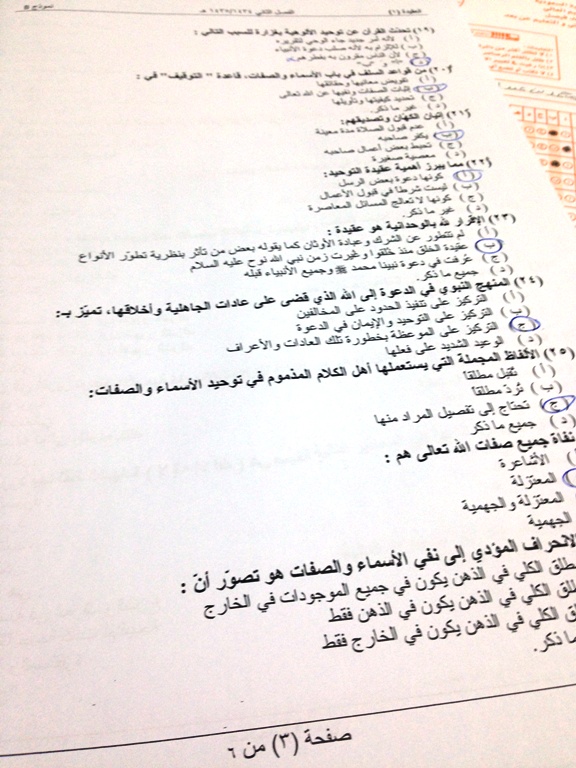 العقيدة (١) الفصل الثاني ١٤٣٤/١٤٣٥ هـ نموذج B
(١٩) تحدث القرآن عن توحيد الألوهية بغزارة للسبب التالي :
(أ) لأنه أمر جديد جاء الوحي لتقريره
(ب) لالتزام به لأنه صلب دعوة الأنبياء
(ج) لأن الناس مقرون به بفطرهم
(د) «أ» و «ب»
(٢٠) من قواعد السلف في باب الأسماء والصفات، قاعدة " التوقيف" في :
(أ) تفويض معانيها وحقائقها
(ب) إثبات الصفات ونفيها عن الله تعالى
(ج) تحديد كيفيتها وتأويلها
(د) غير ما ذكر.
(٢١) إتيان الكهان وتصديقهم:
(أ) عدم قبول الصلاة مدة معينة
(ب) يكفر صاحبه
(ج) تحبط بعض أعمال صاحبه
(د) معصية صغيرة
(٢٢) مما يبرز أهمية عقيدة التوحيد:
(أ) كونها دعوة بعض الرسل
(ب) ليست شرطا في قبول الأعمال
(ج) كونها لا تعالج المسائل المعاصرة
(د) غير ما ذكر.
(٢٣) الإقرار لله بالوحدانية هو عقيدة :
(أ) لم تتطور عن الشرك وعبادة الأوثان كما يقوله بعض من تأثر بنظرية تطور الأنواع
(ب) عقيدة الخلق منذ خلقوا وغيرت زمن نبي الله نوح عليه السلام
(ج) عرفت في دعوة نبينا محمد ﷺ وجميع الأنبياء قبله
(د) جميع ما ذكر.
(٢٤) المنهج النبوي في الدعوة إلى الله الذي قضى على عادات الجاهلية وأخلاقها، تميّز بـ:
(أ) التركيز على تنفيذ الحدود على المخالفين
(ب) التركيز على التوحيد والإيمان في الدعوة
(ج) التركيز على الموعظة بخطورة تلك العادات والأعراف
(د) الوعيد الشديد على فعلها
(٢٥) الألفاظ المجملة التي يستعملها أهل الكلام المذموم في توحيد الأسماء والصفات:
(أ) تقبل مطلقاً
(ب) تُردّ مطلقاً
(ج) تحتاج إلى تفصيل المراد منها
(د) جميع ما ذكر
نفاة جميع صفات الله تعالى هم :
الأشاعرة
المعتزلة
المعتزلة والجهمية
الجهمية
الانحراف المؤدي إلى نفي الأسماء والصفات هو تصوّر أنّ :
الكلي في الذهن يكون في جميع الموجودات في الخارج
الكلي في الذهن يكون في الذهن فقط
الكلي في الذهن يكون في الخارج فقط
ما ذكر.
صفحة (٣) من ٦